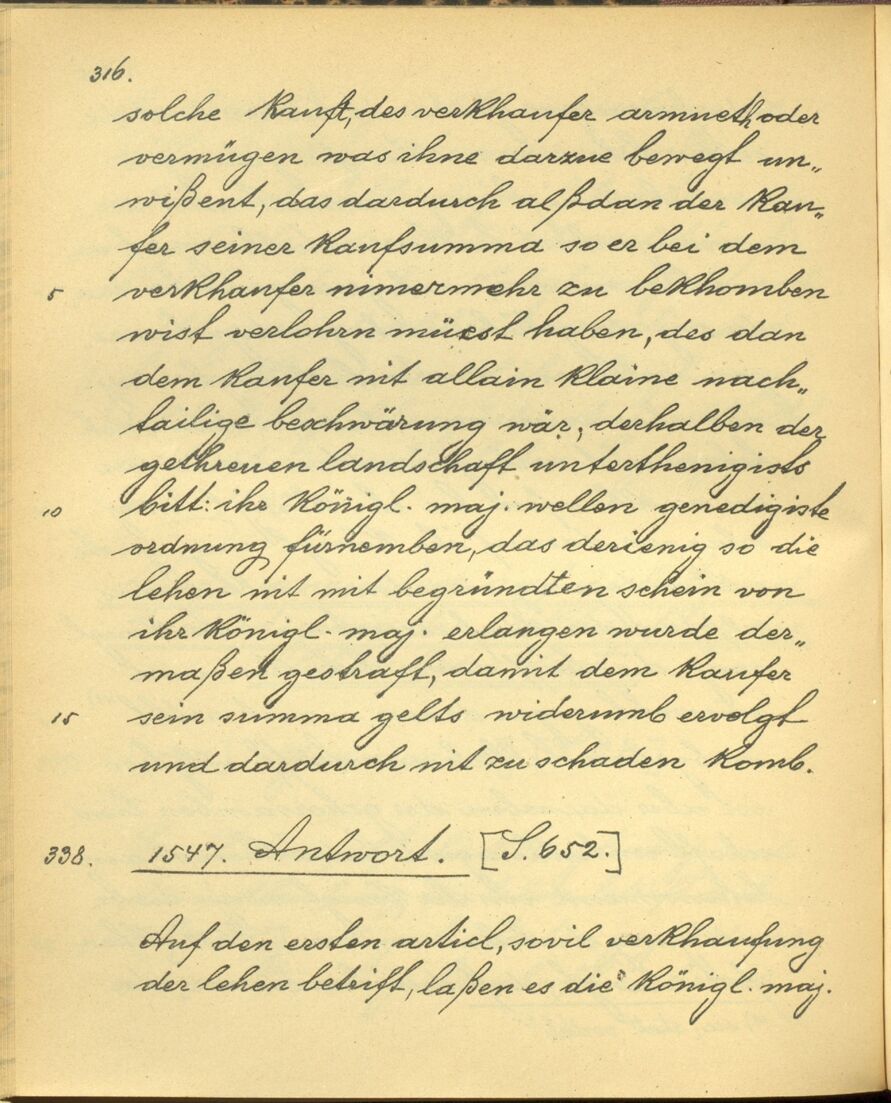 316.
solche Kauft, des verkhaufer armueth oder
vermügen was ihne darzue bewegt un„
wißent, das dardurch alßdan der Kau„
fer seiner Kaufsumma so er bei dem
5 verkhaufer nimermehr zu bekhomben
wist verlohrn müest haben, des dan
dem Kaufer nit allain klaine nach„
tailige beschwärung wär; derhalben der
gethreuen landschaft unterthenigists
10 bitt: ihr Königl. maj. wellen genedigiste
ordnung fürnemben, das derienig so die
lehen nit mit begründten schein von
ihr Königl. maj. erlangen wurde der„
maßen gestraft, damit dem Kaufer
15 sein summa gelts widerumb ervolgt
und dardurch nit zu schaden komb.
338. 1547. Antwort. [S. 652.]
Auf den ersten articl, sovil verkhaufung
der lehen betrift, laßen es die Königl. maj.